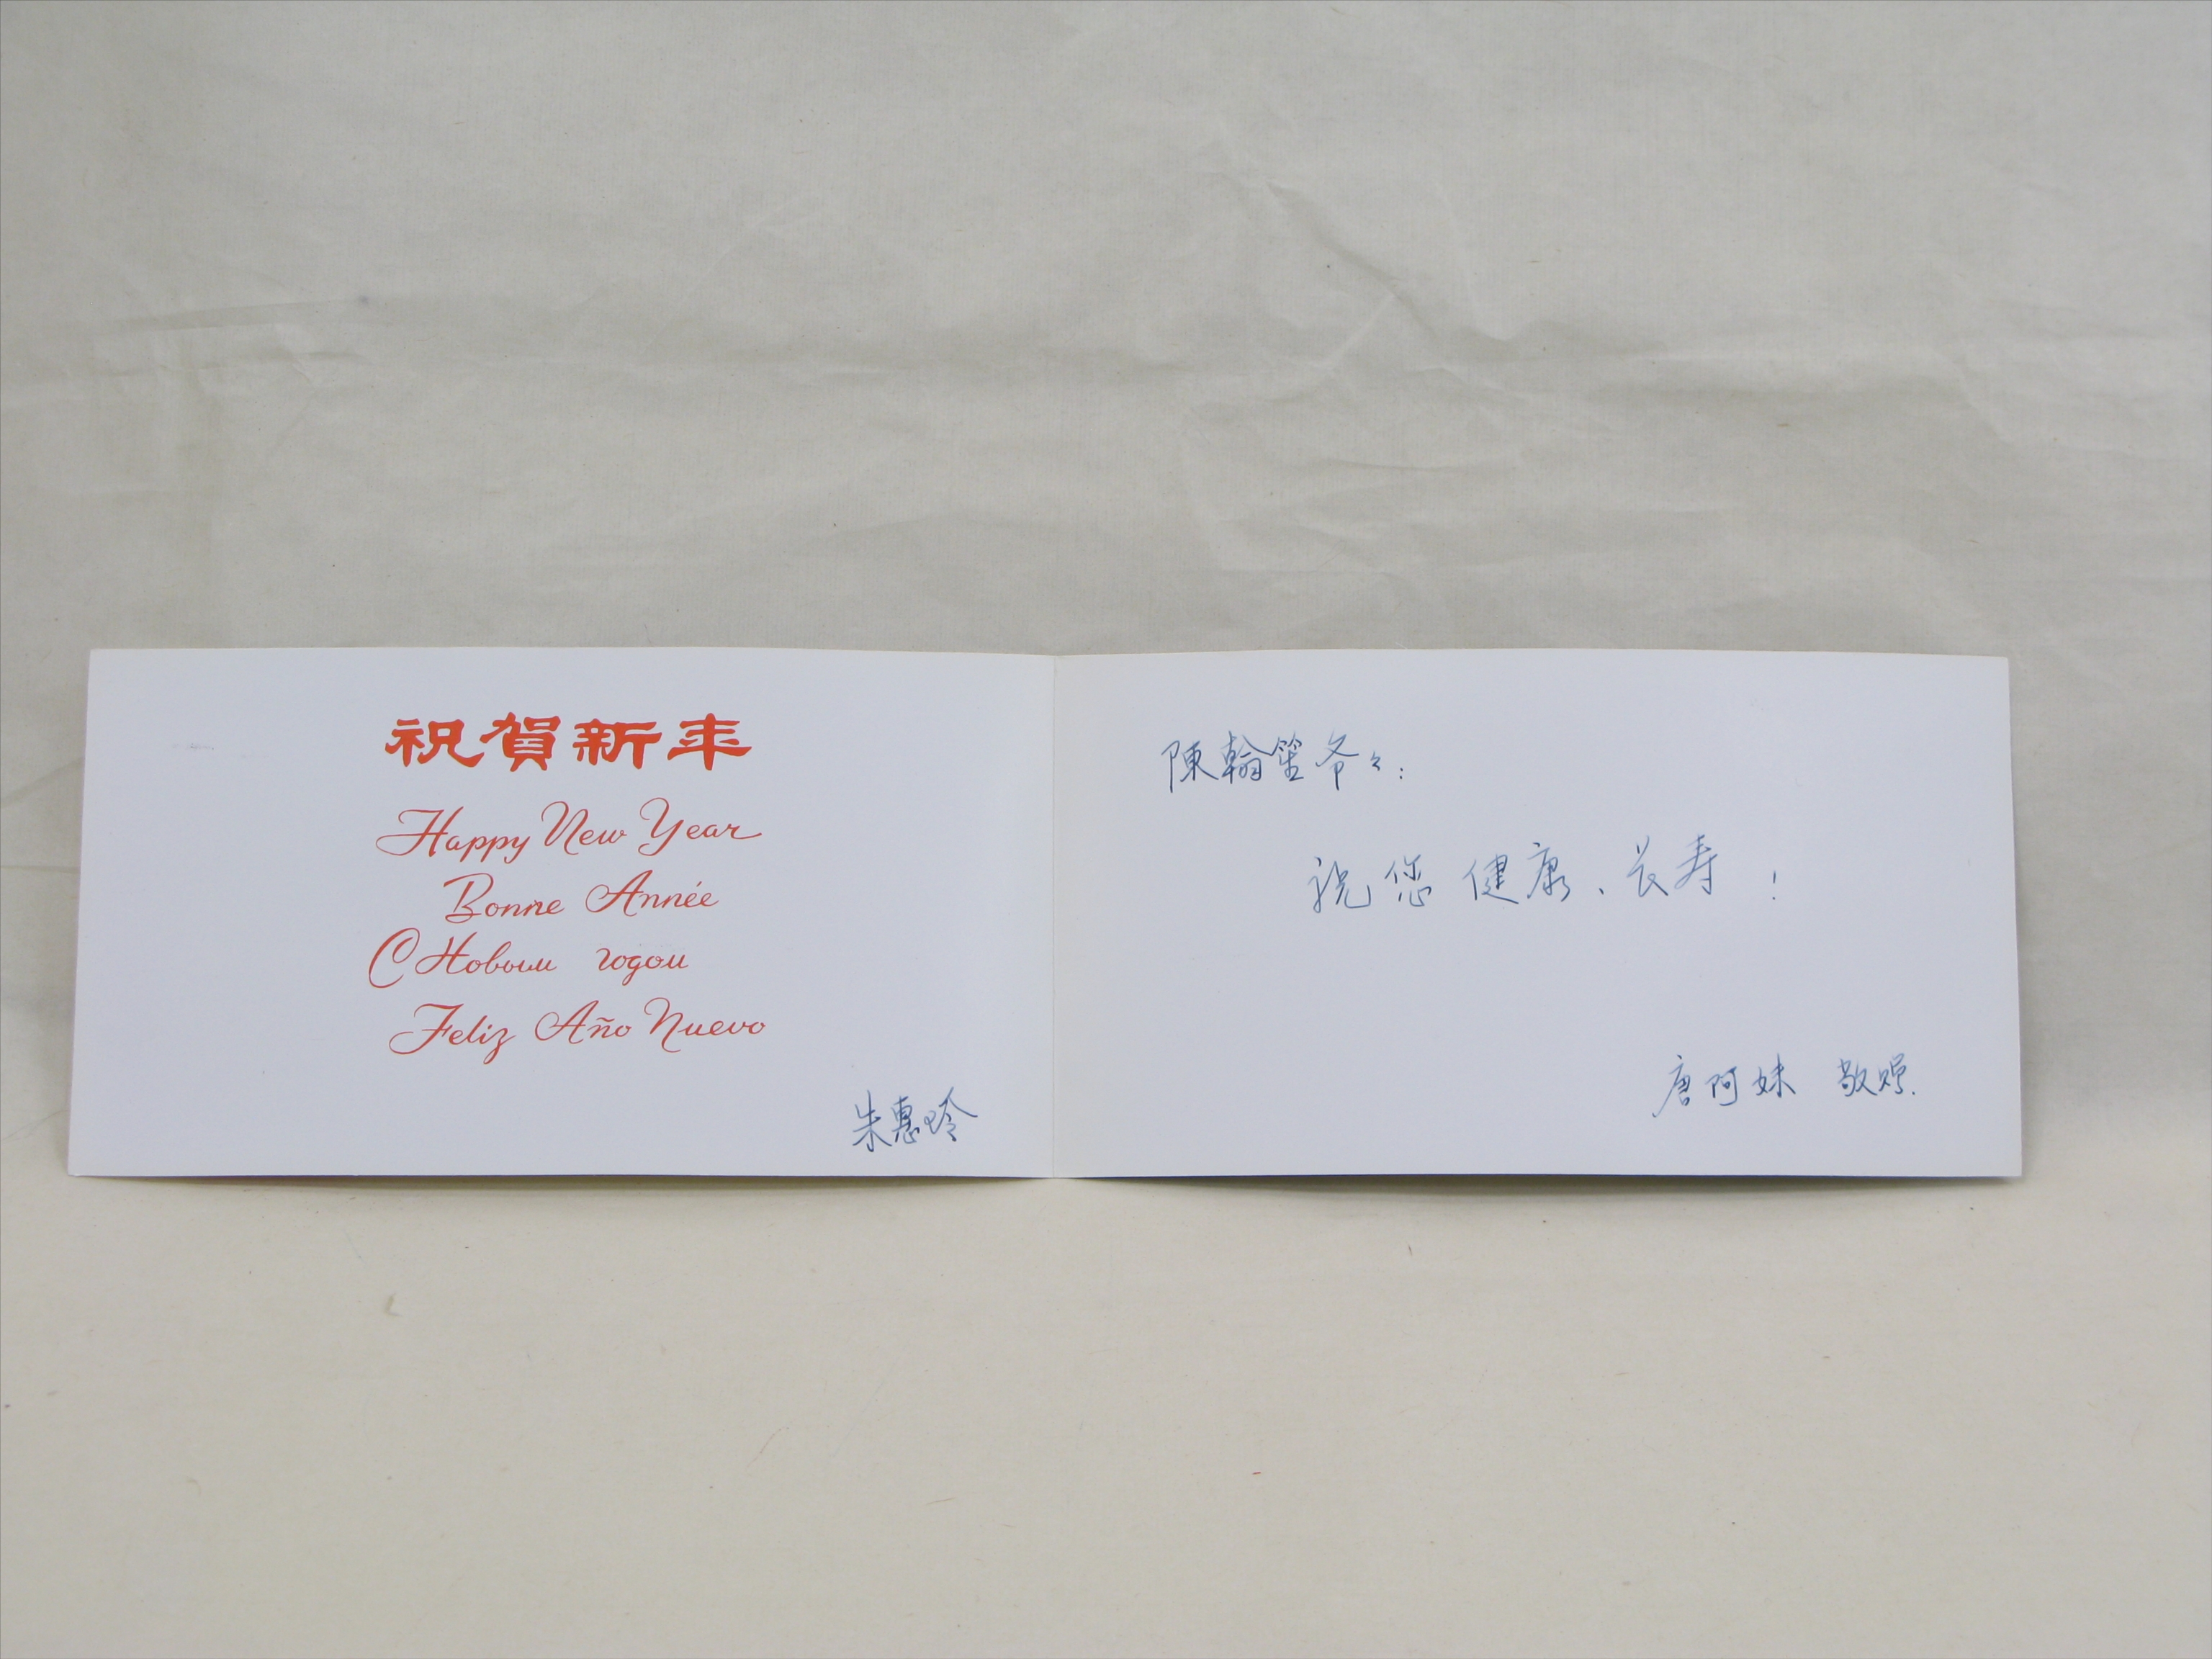 祝賀新年
Happy New Year
Bonne Année
С Новым годом
Feliz Año Nuevo
朱惠玲
陳翰笙爷々:
祝您健康、长寿!
唐阿妹 敬赠.